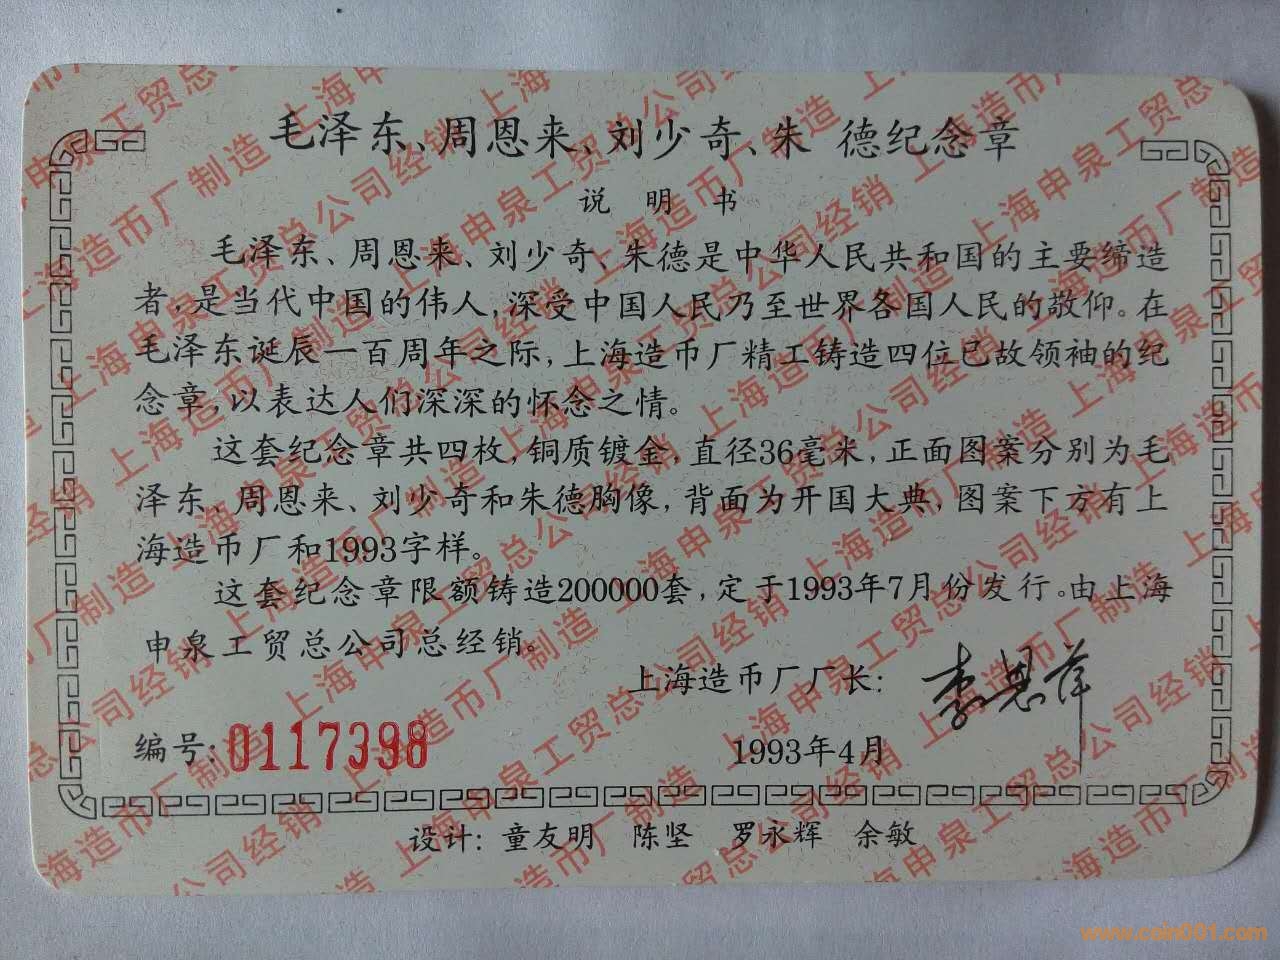 毛泽东、周恩来、刘少奇、朱 德纪念章
说 明 书
毛泽东、周恩来、刘少奇、朱德是中华人民共和国的主要缔造
者，是当代中国的伟人，深受中国人民乃至世界各国人民的敬仰。在
毛泽东诞辰一百周年之际，上海造币厂精工铸造四位已故领袖的纪
念章，以表达人们深深的怀念之情。
这套纪念章共四枚，铜质镀金，直径36毫米，正面图案分别为毛
泽东、周恩来、刘少奇和朱德胸像，背面为开国大典，图案下方有上
海造币厂和1993字样。
这套纪念章限额铸造200000套，定于1993年7月份发行。由上海
申泉工贸总公司总经销。
上海造币厂厂长：
编号：0117398
1993年4月
设计：童友明 陈坚 罗永辉 余敏
上海造币厂制造 上海申泉工贸总公司经销
www.coin001.com